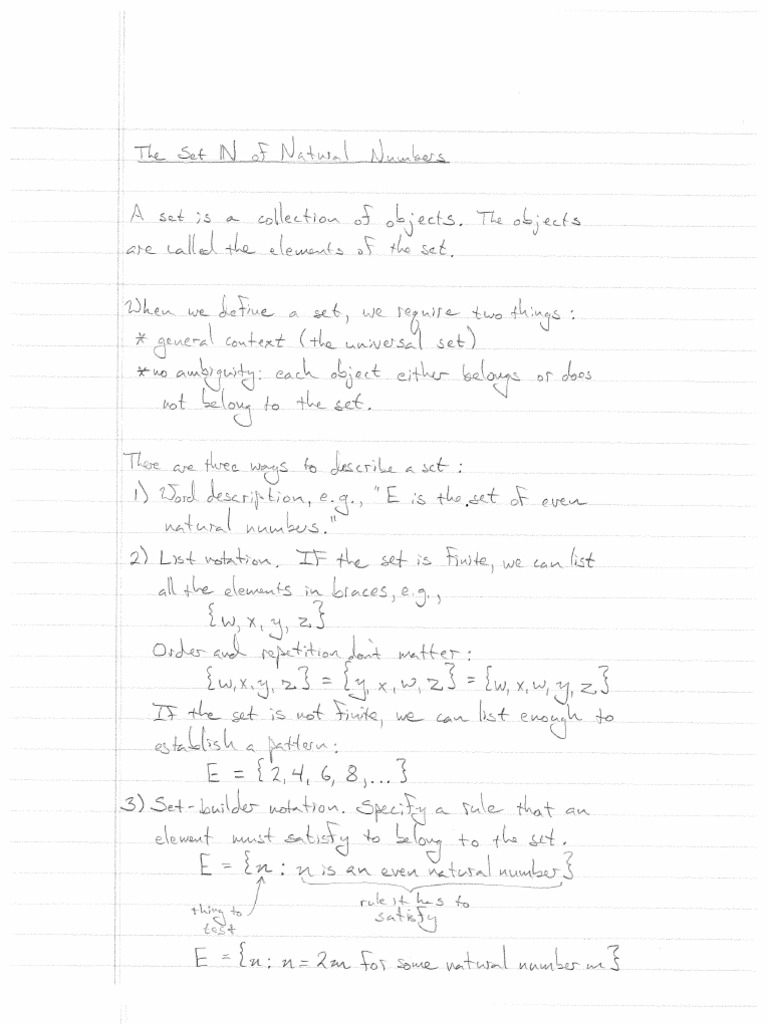 The Set ℕ of Natural Numbers
A set is a collection of objects. The objects
are called the elements of the set.
When we define a set, we require two things:
* general context (the universal set)
* no ambiguity: each object either belongs or does
not belong to the set.
There are three ways to describe a set:
1) Word description, e.g., "E is the set of even
natural numbers."
2) List notation. If the set is finite, we can list
all the elements in braces, e.g.,
{w, x, y, z}
Order and repetition don't matter:
{w, x, y, z} = {y, x, w, z} = {w, x, w, y, z}
If the set is not finite, we can list enough to
establish a pattern:
E = {2, 4, 6, 8, ...}
3) Set-builder notation. Specify a rule that an
element must satisfy to belong to the set.
E = {n : n is an even natural number}
thing to
test
rule it has to
satisfy
E = {n : n = 2m for some natural number m}